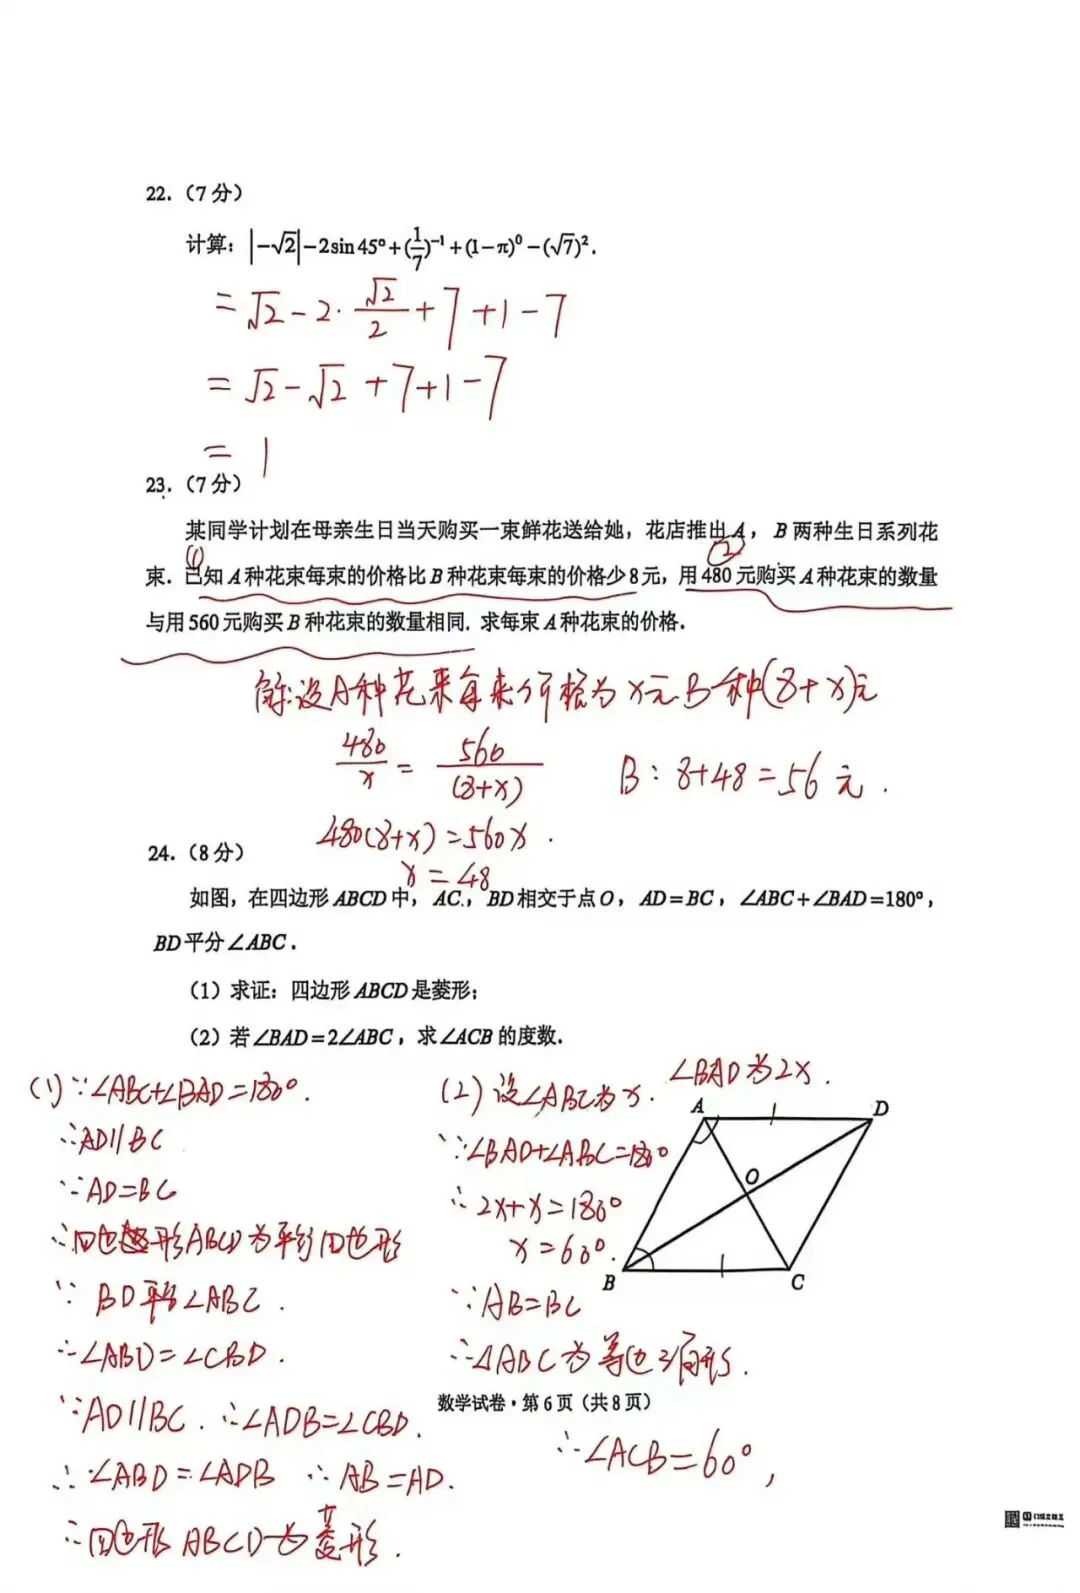 22.（7分）
计算：|-√2|-2sin45°+(1/7)⁻¹+(1-π)⁰-(√7)².
=√2-2·√2/2+7+1-7
=√2-√2+7+1-7
=1
23.（7分）
某同学计划在母亲生日当天购买一束鲜花送给她，花店推出A，B两种生日系列花
① ②
束．已知A种花束每束的价格比B种花束每束的价格少8元，用480元购买A种花束的数量
与用560元购买B种花束的数量相同．求每束A种花束的价格．
解:设A种花束每束价格为x元B种(8+x)元
480/x=560/(8+x)
B:8+48=56元.
480(8+x)=560x.
x=48
24.（8分）
如图，在四边形ABCD中，AC，BD相交于点O，AD=BC，∠ABC+∠BAD=180°，
BD平分∠ABC．
（1）求证：四边形ABCD是菱形；
（2）若∠BAD=2∠ABC，求∠ACB的度数．
(1)∵∠ABC+∠BAD=180°.
∴AD∥BC
∵AD=BC
∴四边形ABCD为平行四边形
∵BD平分∠ABC.
∴∠ABD=∠CBD.
∵AD∥BC.∴∠ADB=∠CBD.
∴∠ABD=∠ADB ∴AB=AD.
∴四边形ABCD为菱形.
(2)设∠ABC为x. ∠BAD为2x.
∵∠BAD+∠ABC=180°
∴2x+x=180°
x=60°.
∵AB=BC
∴△ABC为等边三角形.
∴∠ACB=60°,
A
D
O
B
C
数学试卷·第6页（共8页）